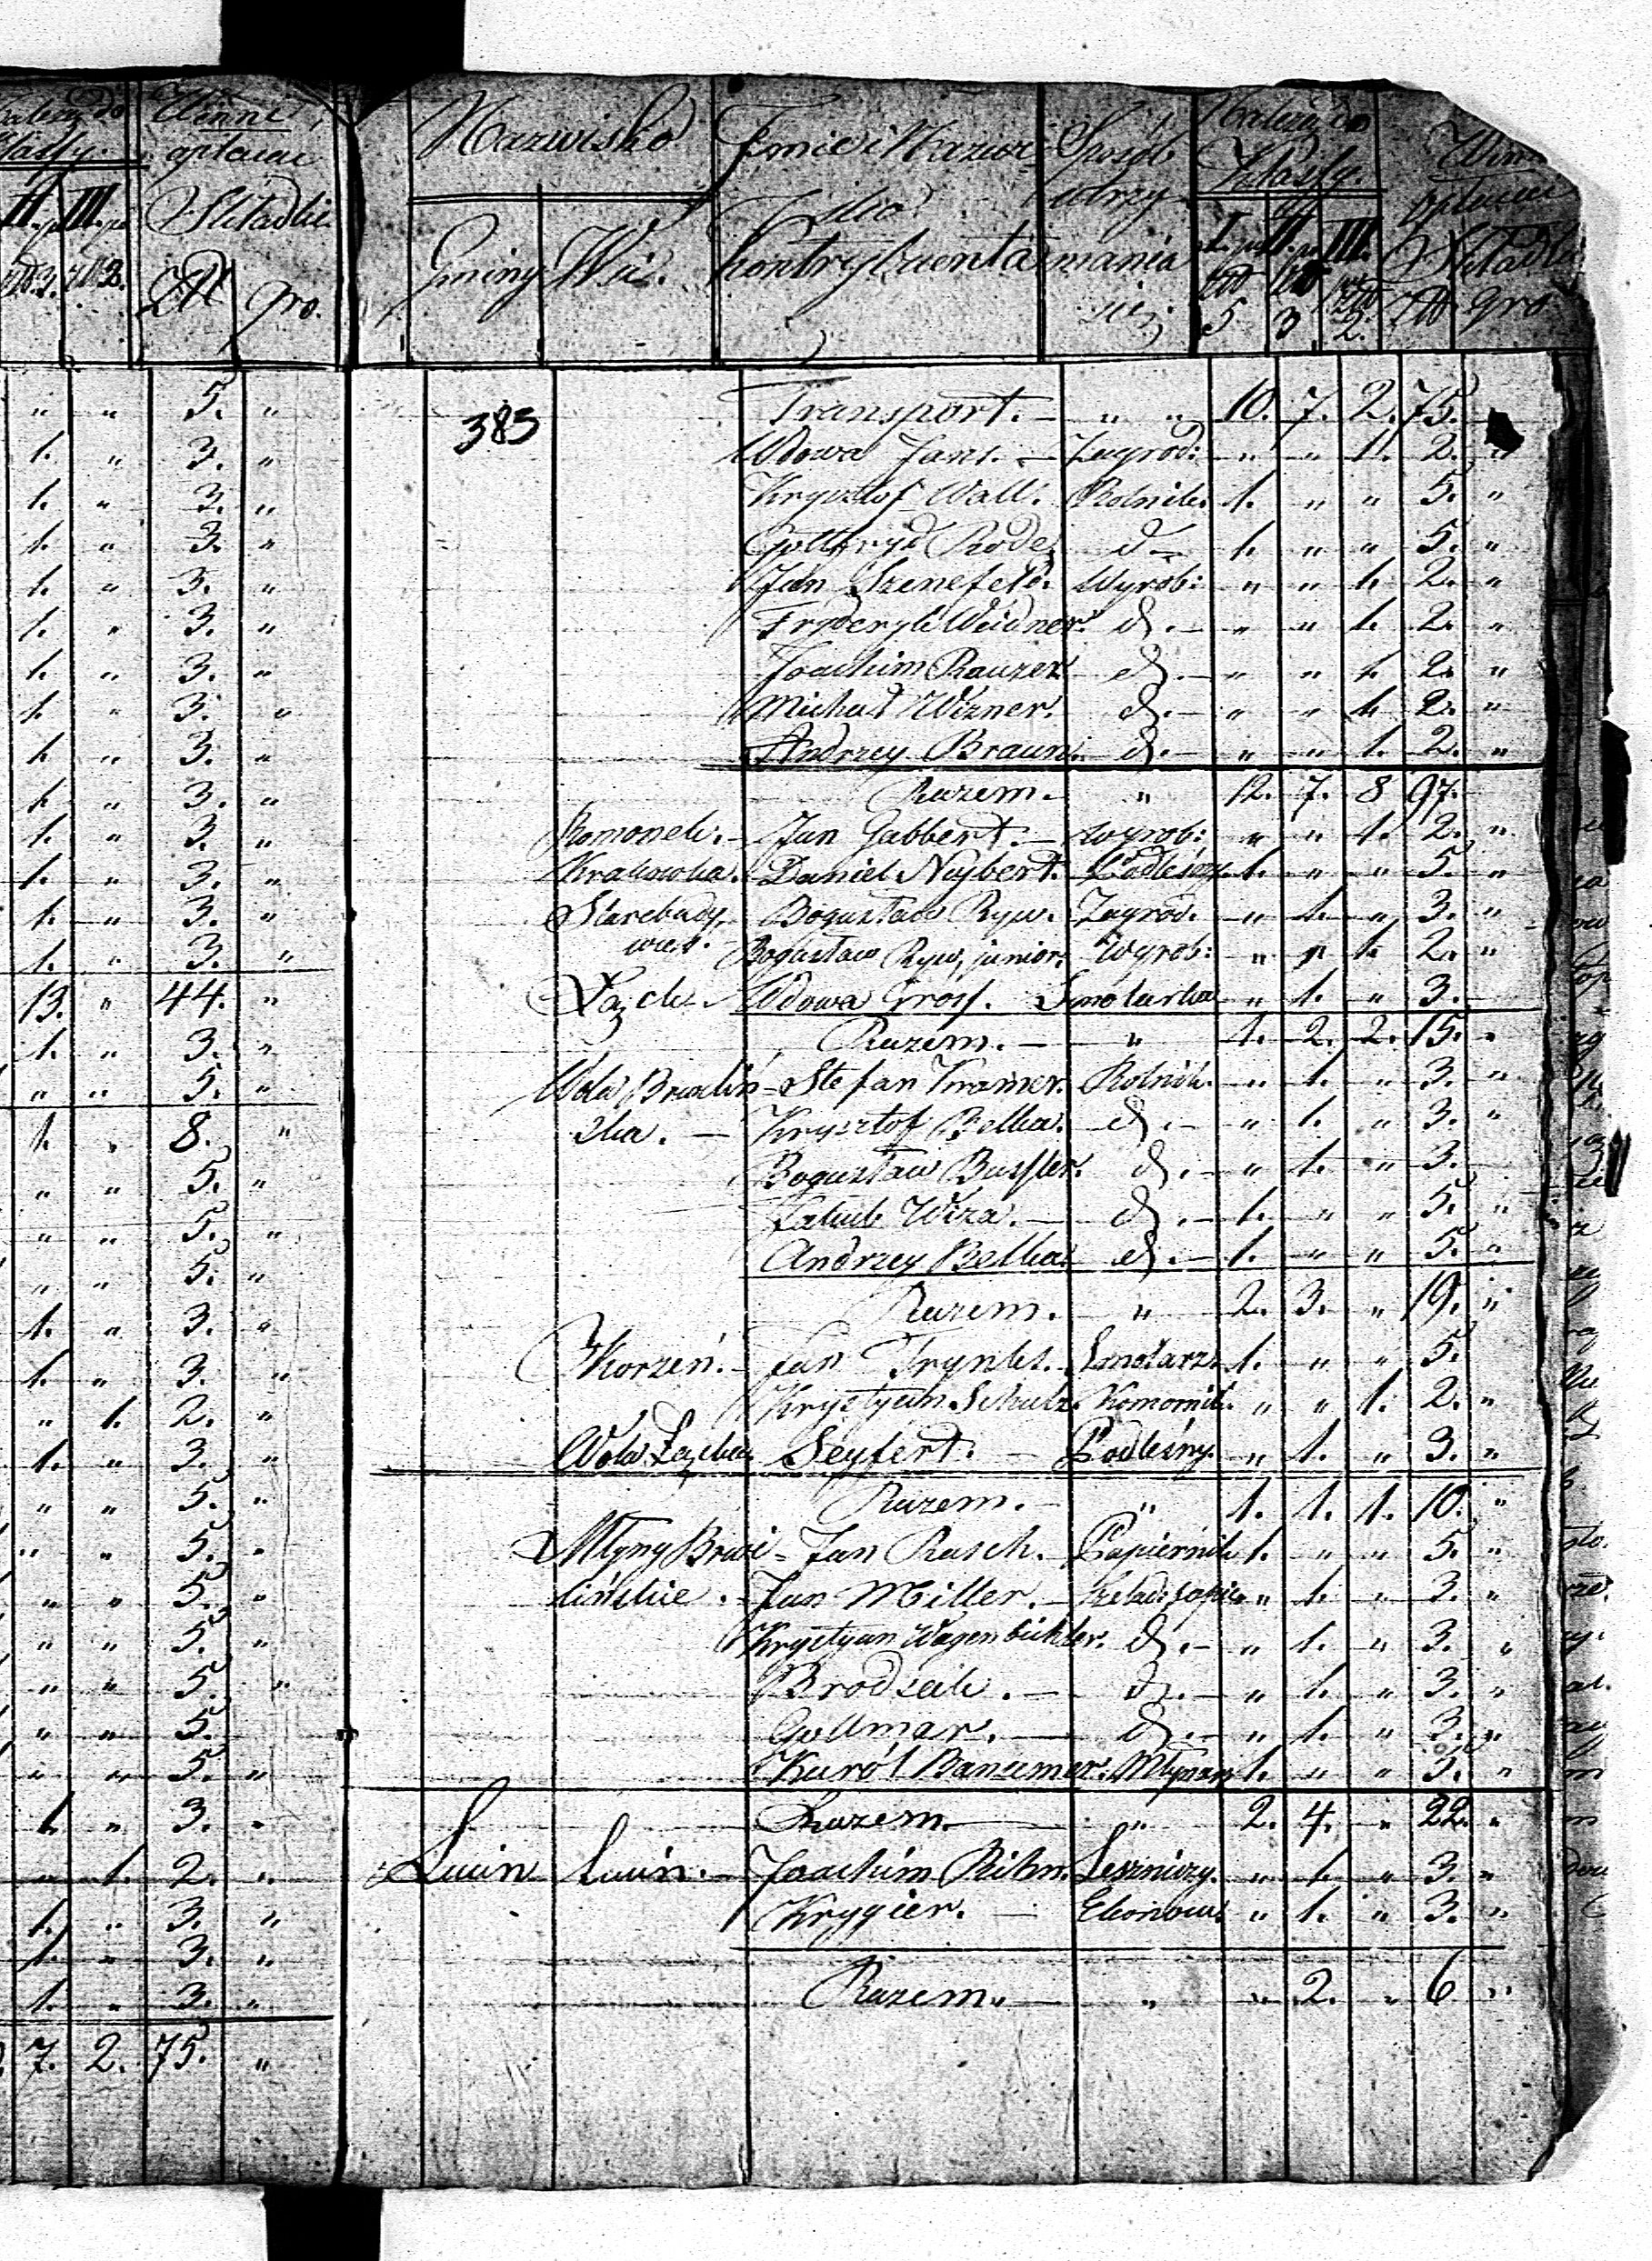 Należą do Winni
Klassy. opłacać
II. p III. p Składki
Zł gro.
" " 5. "
1. " 3. "
1. " 3. "
1. " 3. "
1. " 3. "
1. " 3. "
1. " 3. "
1. " 3. "
1. " 3. "
1. " 3. "
1. " 3. "
1. " 3. "
1. " 3. "
1. " 3. "
13. " 44. "
1. " 3. "
" " 5. "
1. " 8. "
" " 5. "
" " 5. "
" " 5. "
1. " 3. "
1. " 3. "
" 1. 2. "
1. " 3. "
" " 5. "
" " 5. "
" " 5. "
" " 5. "
" " 5. "
" " 5. "
" " 5. "
1. " 3. "
" 1. 2. "
1. " 3. "
1. " 3. "
1. " 3. "
7. 2. 75. "
Nazwisko Jmie i Nazwi Sposób Należą do Winni
sko utrzy Klassy. opłacać
Gminy Wsi. Kontrybuenta mania I. p II. p III. Składki
się. 5 3 2. gro
383 Transport. — " " 10. 7. 2. 75.
Wdowa Jans. — Zagrod: " " 1. 2. "
Krysztof Wall. Rolnik. 1. " " 5. "
Gottfryd Rode d — 1. " " 5. "
Jan Szenefeld. Wyrob: " " 1. 2. "
Fryderyk Weidner. d. — " " 1. 2. "
Joachim Rauzer d. — " " 1. 2. "
Michał Wizner. d. — " " 1. 2. "
Andrzey Braun. d. — " " 1. 2. "
Razem. " 12. 7. 8 97.
Jan Gabbert. — Wyrob: " " 1. 2. "
Krakowka. Daniel Najbert. Podleśny. 1. " " 5. "
Starebudy Bogusław Ryw. Zagrod. " 1. " 3. "
Bogusław Ryw, junior. Wyrob: " " 1. 2. "
Łazek. Wdowa Gross. Smolarka " 1. " 3.
Razem. — " 1. 2. 2. 15. "
Wola Bruliń- Stefan Kramer. Rolnik. " 1. " 3. "
ska. — Krysztof Belka. d. — " 1. " 3. "
Bogusław Bussler. d. — " 1. " 3.
Jakub Wiza. — d. — 1. " " 5. "
Andrzey Belka. d. — 1. " " 5. "
Razem. " 2. 3. " 19. "
Korzeń. — Jan Trynks. Smolarz. 1. " " 5.
Krystyan Schulz. Komornik. " " 1. 2. "
Wola Łazka. Seyfert. — Podleśny. " 1. " 3. "
Razem. — " 1. 1. 1. 10. "
Młyny Jan Rasch. — Papiernik 1. " " 5. "
Jan Miller. — " 1. " 3. "
Krystyan Wagenbichler. d. — " 1. " 3. "
Brodzeik. — d. — " 1. " 3. "
Gollmar. — d. — " 1. " 3. "
Karól Młynarz 1. " " 5. "
Razem. — " 2. 4. " 22. "
Joachim Rihn. Leśniczy. " 1. " 3. "
Krygier. — Ekonom. " 1. " 3. "
Razem. — " " 2. " 6 "